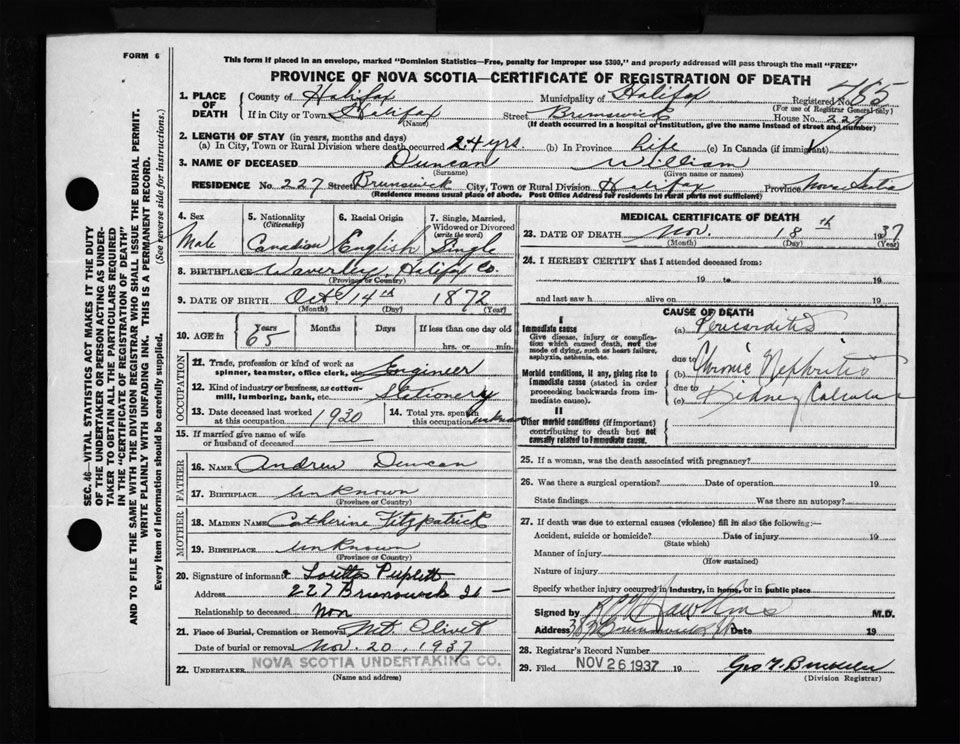 FORM 6
This form if placed in an envelope, marked "Dominion Statistics—Free, penalty for improper use $300," and properly addressed will pass through the mail "FREE"
PROVINCE OF NOVA SCOTIA—CERTIFICATE OF REGISTRATION OF DEATH
SEC. 46—VITAL STATISTICS ACT MAKES IT THE DUTY
OF THE UNDERTAKER OR PERSON ACTING AS UNDER-
TAKER TO OBTAIN ALL THE PARTICULARS REQUIRED
IN THE "CERTIFICATE OF REGISTRATION OF DEATH"
AND TO FILE THE SAME WITH THE DIVISION REGISTRAR WHO SHALL ISSUE THE BURIAL PERMIT.
WRITE PLAINLY WITH UNFADING INK. THIS IS A PERMANENT RECORD.
Every item of information should be carefully supplied. (See reverse side for instructions.)
1. PLACE OF DEATH
County of Halifax Municipality of Halifax Registered No.
(For use of Registrar General only)
If in City or Town Halifax Street Brunswick House No. 227
(Name) (If death occurred in a hospital or institution, give the name instead of street and number)
2. LENGTH OF STAY (in years, months and days)
(a) In City, Town or Rural Division where death occurred 24 yrs. (b) In Province Life (c) In Canada (if immigrant)
3. NAME OF DECEASED Duncan William
(Surname) (Given name or names)
RESIDENCE No. 227 Street Brunswick City, Town or Rural Division Halifax Province Nova Scotia
(Residence means usual place of abode. Post Office Address for residents in rural parts not sufficient)
4. Sex Male
5. Nationality (Citizenship) Canadian
6. Racial Origin English
7. Single, Married, Widowed or Divorced (write the word) Single
8. BIRTHPLACE Waverley, Halifax Co.
(Province or Country)
9. DATE OF BIRTH Oct. 14th 1872
(Month) (Day) (Year)
10. AGE in Years Months Days If less than one day old
65 hrs. or min.
OCCUPATION
11. Trade, profession or kind of work as
spinner, teamster, office clerk, etc. Engineer
12. Kind of industry or business, as cotton-
mill, lumbering, bank, etc. Stetionery
13. Date deceased last worked at this occupation 1930
14. Total yrs. spent in this occupation unknown
15. If married give name of wife
or husband of deceased
FATHER
16. NAME Andrew Duncan
17. BIRTHPLACE Unknown
(Province or Country)
MOTHER
18. MAIDEN NAME Catherine Fitzpatrick
19. BIRTHPLACE Unknown
(Province or Country)
20. Signature of informant Loretta
Address 227 Brunswick St
Relationship to deceased Non
21. Place of Burial, Cremation or Removal Mt. Olivet
Date of burial or removal Nov. 20, 1937
22. UNDERTAKER NOVA SCOTIA UNDERTAKING CO.
(Name and address)
MEDICAL CERTIFICATE OF DEATH
23. DATE OF DEATH Nov. 18th 1937
(Month) (Day) (Year)
24. I HEREBY CERTIFY that I attended deceased from:
19 to 19
and last saw h alive on 19
CAUSE OF DEATH
I
Immediate cause (a) Pericarditis
Give disease, injury or complica-
tion which caused death, not the
mode of dying, such as heart failure,
asphyxia, asthenia, etc.
due to
Morbid conditions, if any, giving rise to (b) Chronic Nephritis
immediate cause (stated in order due to
proceeding backwards from im- (c) Kidney Calculus
mediate cause).
II
Other morbid conditions (if important)
contributing to death but not
causally related to immediate cause.
25. If a woman, was the death associated with pregnancy?
26. Was there a surgical operation? Date of operation 19
State findings Was there an autopsy?
27. If death was due to external causes (violence) fill in also the following:—
Accident, suicide or homicide? Date of injury 19
(State which)
Manner of injury
(How sustained)
Nature of injury
Specify whether injury occurred in industry, in home, or in public place
Signed by Hawkins M.D.
Address Brunswick St Date 19
28. Registrar's Record Number
29. Filed NOV 26 1937 19
(Division Registrar)